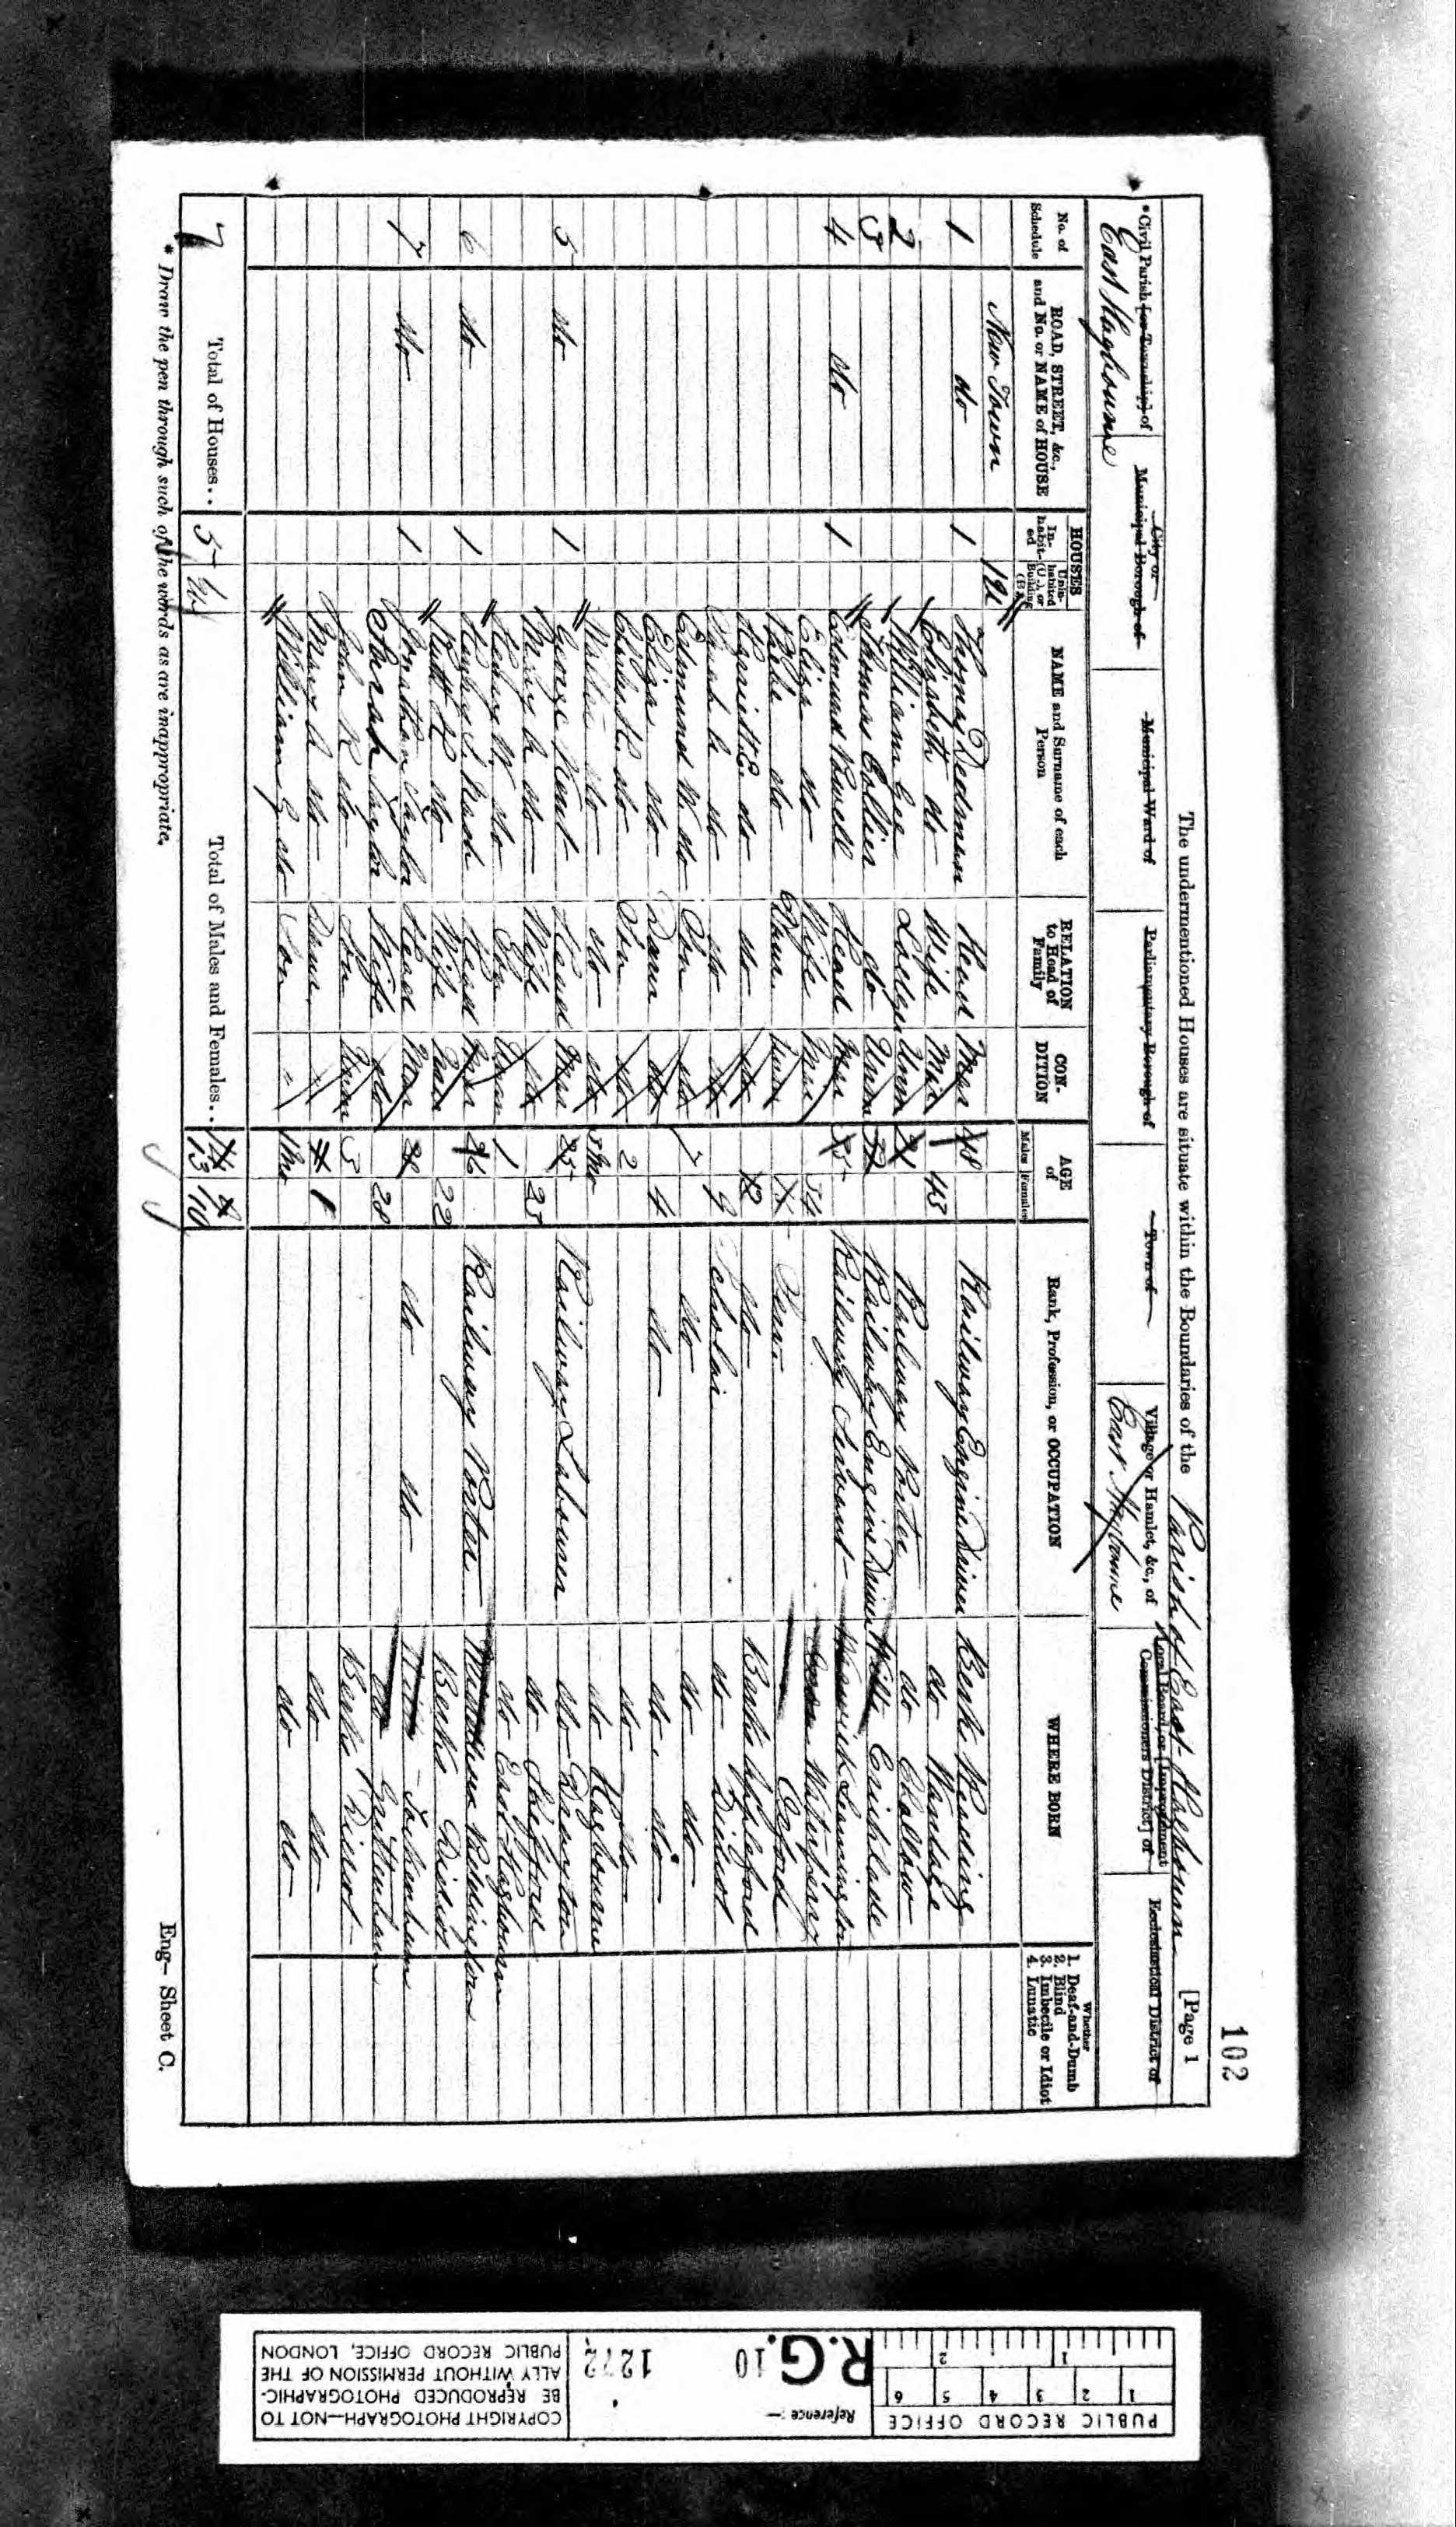 102
The undermentioned Houses are situate within the Boundaries of the Parish of East Hagbourne [Page 1
* Civil Parish [or Township] of East Hagbourne
City or Municipal Borough of
Municipal Ward of
Parliamentary Borough of
Town of
Village or Hamlet, &c., of East Hagbourne
Local Board, or [Improvement Commissioners District] of
Ecclesiastical District of
No. of Schedule
ROAD, STREET, &c., and No. or NAME of HOUSE
HOUSES
Inhabited
Uninhabited (U.), or Building (B.)
NAME and Surname of each Person
RELATION to Head of Family
CONDITION
AGE of
Males Females
Rank, Profession, or OCCUPATION
WHERE BORN
Whether
1. Deaf-and-Dumb
2. Blind
3. Imbecile or Idiot
4. Lunatic
New Town
1 do 1 Thomas Dedman Head Mar 48 Railway Engine Driver Berks Reading
Elizabeth do Wife Mar 43 do Wantage
2 William Gee Lodger Unm 21 Railway Porter do Challow
3 Thomas Collier do Unm Railway Engine Driver Wilts Cricklade
4 do 1 Edmund Powell Head Mar Railway Servant Warwick Leamington
Eliza do Wife Mar 34 Waterperry
do Daur Oxford
Harriett E. do do 12 do Berks Appleford
Sarah A do do 9 Scholar do Didcot
Edmund W. do Son do 7 do do do
Eliza do Daur do 4 do do do
Charles H. do Son do 2 do do
Walter do do do 3 Mo do Hagbourne
5 do 1 George Kent Head Mar 25 Railway Labourer do Drayton
Mary A do Wife do 25 do Shifford
Henry W. do Son 1 do East Hagbourne
6 do 1 Henry S. Head Mar 26 Railway Porter
Ruth do Wife Mar 22 Berks Didcot
7 do 1 Jonathan Taylor Head Mar 28 do do Wilts Tockenham
Sarah Taylor Wife do 28 do Grittenham
John R do Son Unm 3 Berks Didcot
Mary A do Daur " 1 do do
William G do Son " 1 Mo do do
7 Total of Houses.. 5 Total of Males and Females.. 13 10
* Draw the pen through such of the words as are inappropriate.
Eng- Sheet C.
PUBLIC RECORD OFFICE
1 2 3 4 5 6
1 2
Reference :-
R.G. 10 1272
COPYRIGHT PHOTOGRAPH—NOT TO
BE REPRODUCED PHOTOGRAPHIC-
ALLY WITHOUT PERMISSION OF THE
PUBLIC RECORD OFFICE, LONDON